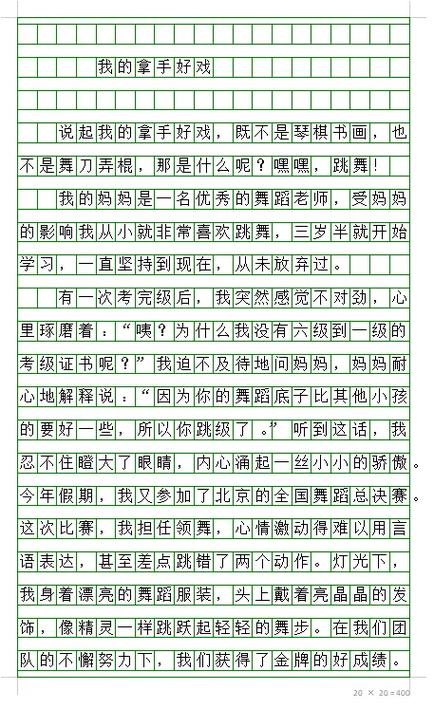 我的拿手好戏
说起我的拿手好戏，既不是琴棋书画，也
不是舞刀弄棍，那是什么呢？嘿嘿，跳舞！
我的妈妈是一名优秀的舞蹈老师，受妈妈
的影响我从小就非常喜欢跳舞，三岁半就开始
学习，一直坚持到现在，从未放弃过。
有一次考完级后，我突然感觉不对劲，心
里琢磨着：“咦？为什么我没有六级到一级的
考级证书呢？”我迫不及待地问妈妈，妈妈耐
心地解释说：“因为你的舞蹈底子比其他小孩
的要好一些，所以你跳级了。”听到这话，我
忍不住瞪大了眼睛，内心涌起一丝小小的骄傲。
今年假期，我又参加了北京的全国舞蹈总决赛。
这次比赛，我担任领舞，心情激动得难以用言
语表达，甚至差点跳错了两个动作。灯光下，
我身着漂亮的舞蹈服装，头上戴着亮晶晶的发
饰，像精灵一样跳跃起轻轻的舞步。在我们团
队的不懈努力下，我们获得了金牌的好成绩。
20 × 20=400